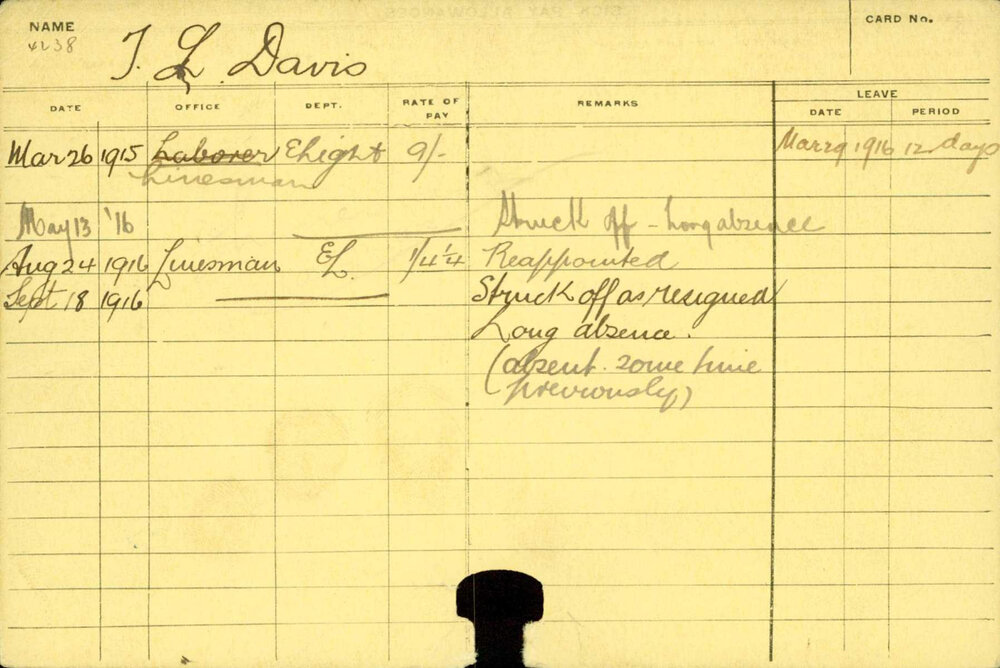 NAME
4238
T. L. Davis
CARD No.
DATE OFFICE DEPT. RATE OF PAY REMARKS LEAVE
DATE PERIOD
Mar 26 1915 Laborer Elight 9/- Mar 29 1916 12 days
Linesman
May 13 '16 Struck off - Long absence
Aug 24 1916 Linesman EL 1/4¼ Reappointed
Sept 18 1916 Struck off as resigned
Long absence.
(absent some time
previously)